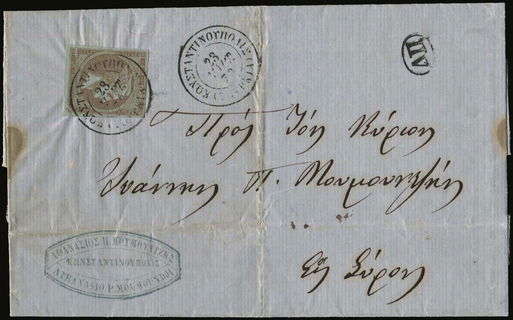 ΚΩΝΣΤΑΝΤΙΝΟΥΠΟΛΙΣ
28
ΚΩΝΣΤΑΝΤΙΝΟΥΠΟΛΙΣ
28
ΑΠ
Πρός Τόν Κύριον
Ἰωάννην Π. Μουμουτζῆν
Εἰς Σύρον
ΑΘΑΝΑΣΙΟΣ Π ΜΟΥΜΟΥΤΖΗΣ
ΚΩΝΣΤΑΝΤΙΝΟΥΠΟΛΙΣ
ATHANASIO P. MOUMOUDGI